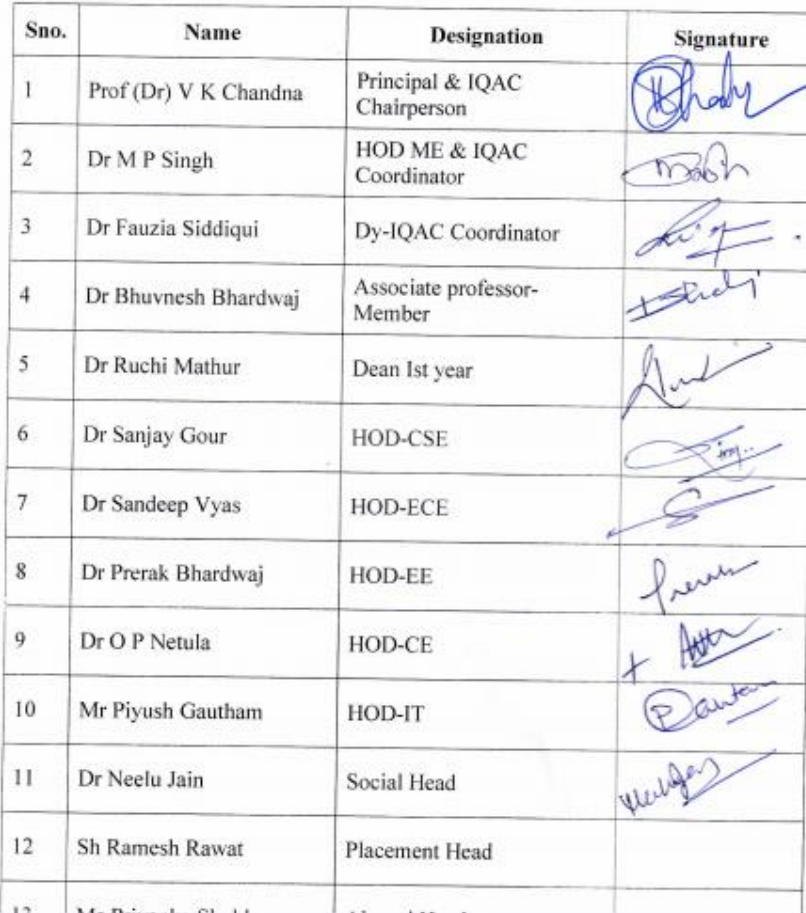 Sno. Name Designation Signature
1 Prof (Dr) V K Chandna Principal & IQAC
Chairperson
2 Dr M P Singh HOD ME & IQAC
Coordinator
3 Dr Fauzia Siddiqui Dy-IQAC Coordinator
4 Dr Bhuvnesh Bhardwaj Associate professor-
Member
5 Dr Ruchi Mathur Dean Ist year
6 Dr Sanjay Gour HOD-CSE
7 Dr Sandeep Vyas HOD-ECE
8 Dr Prerak Bhardwaj HOD-EE
9 Dr O P Netula HOD-CE
10 Mr Piyush Gautham HOD-IT
11 Dr Neelu Jain Social Head
12 Sh Ramesh Rawat Placement Head
13